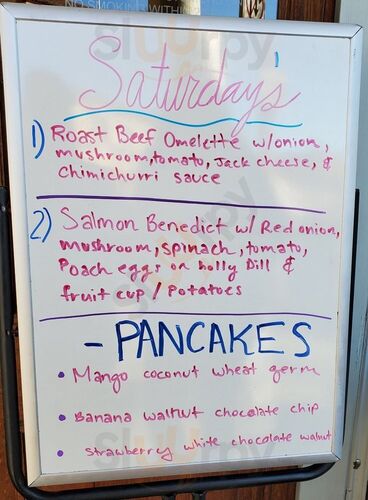 NO SMOKING WITHIN
Saturday's
1) Roast Beef Omelette w/onion,
mushroom, tomato, Jack cheese, &
chimichurri sauce
2) Salmon Benedict w/ Red onion,
mushroom, spinach, tomato,
Poach eggs on holly Dill &
fruit cup / Potatoes
- PANCAKES
• Mango coconut wheat germ
• Banana walnut chocolate chip
• strawberry white chocolate walnut